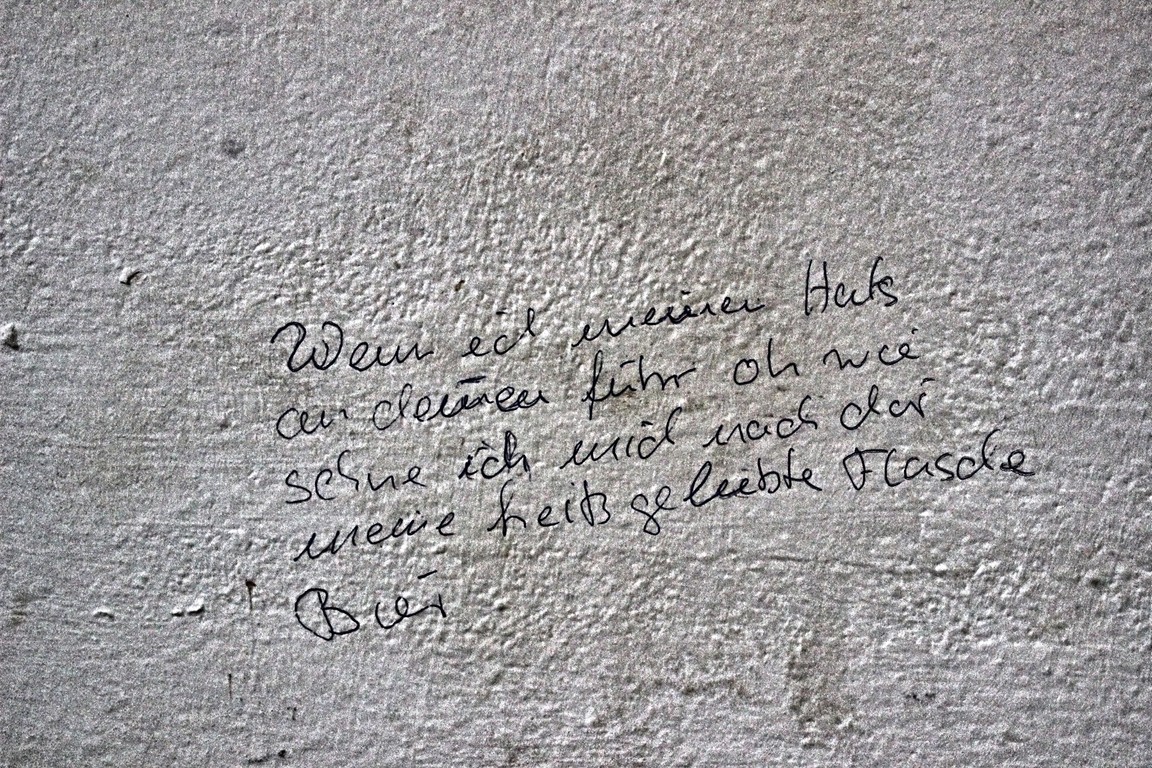 Wenn ich meinen Hals
an deinen führ oh wie
sehne ich mich nach dir
meine heißgeliebte Flasche
Bier